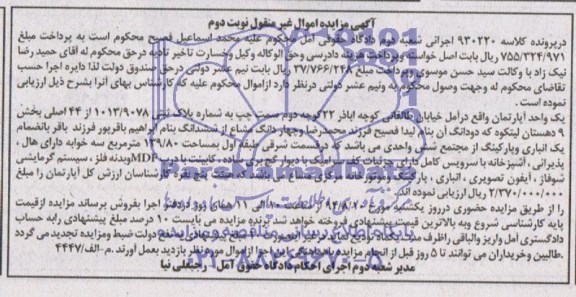 آگهی مزایده اموال غیر منقول نوبت دوم
درپرونده کلاسه ۹۳۰۲۲۰ اجرائی شعبه دوم دادگاه حقوقی آمل محکوم علیه محمد اسماعیل فصیح محکوم است به پرداخت مبلغ
۷۵۵/۳۲۴/۹۷۱ ریال بابت اصل خواسته وپرداخت هزینه دادرسی وحق الوکاله وکیل وخسارت تاخیر تادیه درحق محکوم له آقای حمید رضا
نیک زاد با وکالت سید حسن موسوی وپرداخت مبلغ ۳۷/۷۶۶/۲۴۸ ریال بابت نیم عشر دولتی درحق صندوق دولت لذا دایره اجرا حسب
تقاضای محکوم له وجهت وصول محکوم به ونیم عشر دولتی درنظر دارد ازاموال محکوم علیه که کارشناس بهای آنرا بشرح ذیل ارزیابی
نموده است.
یک واحد آپارتمان واقع درآمل خیابان طالقانی کوچه اباذر ۲۲ کوچه دوم سمت چپ به شماره پلاک ثبتی ۱۰۱۳/۹۰۷۸ از ۴۴ اصلی بخش
۹ دهستان لیتکوه که دودانگ آن بنام لیدا فصیح فرزند محمدرضا وچهار دانگ مشاع از ششدانگ بنام ابراهیم باقرپور فرزند باقر بانضمام
یک انباری وپارکینگ از مجتمع شش واحدی می باشد که درقسمت شرقی طبقه اول بمساحت ۱۳۹/۸۰ مترمربع سه خوابه دارای هال ،
پذیرائی ، آشپزخانه با سرویس کامل دارای جزئیات کف سرامیک با دیوار گچ بری ساده ، کابینت با درب MDF وبدنه فلز ، سیستم گرمایشی
شوفاژ ، آیفون تصویری ، انباری ، پارکینگ می باشد که هیئت پنج نفره کارشناسان ارزش کل آپارتمان را مبلغ
۲/۳۷۰/۰۰۰/۰۰۰ ریال ارزیابی نموده اند
را از طریق مزایده حضوری درروز یکشنبه مورخ ۹۴/۸/۱۰ بفروش برساند مزایده ازقیمت
پایه کارشناسی شروع وبه بالاترین قیمت پیشنهادی فروخته خواهد شد برنده مزایده می بایست ۱۰ درصد مبلغ پیشنهادی رابه حساب
دادگستری آمل واریز والباقی راظرف مدت یکماه دولت ضبط ومزایده تجدید می گردد
.طالبین وخریداران می توانند تا ۵ روز قبل از انجام مزایده اجرا ازاموال مورد نظر بازدید بعمل آورند .م-الف/۴۴۴۷
مدیر شعبه دوم اجرای احکام دادگاه حقوقی آمل - رجبعلی نیا